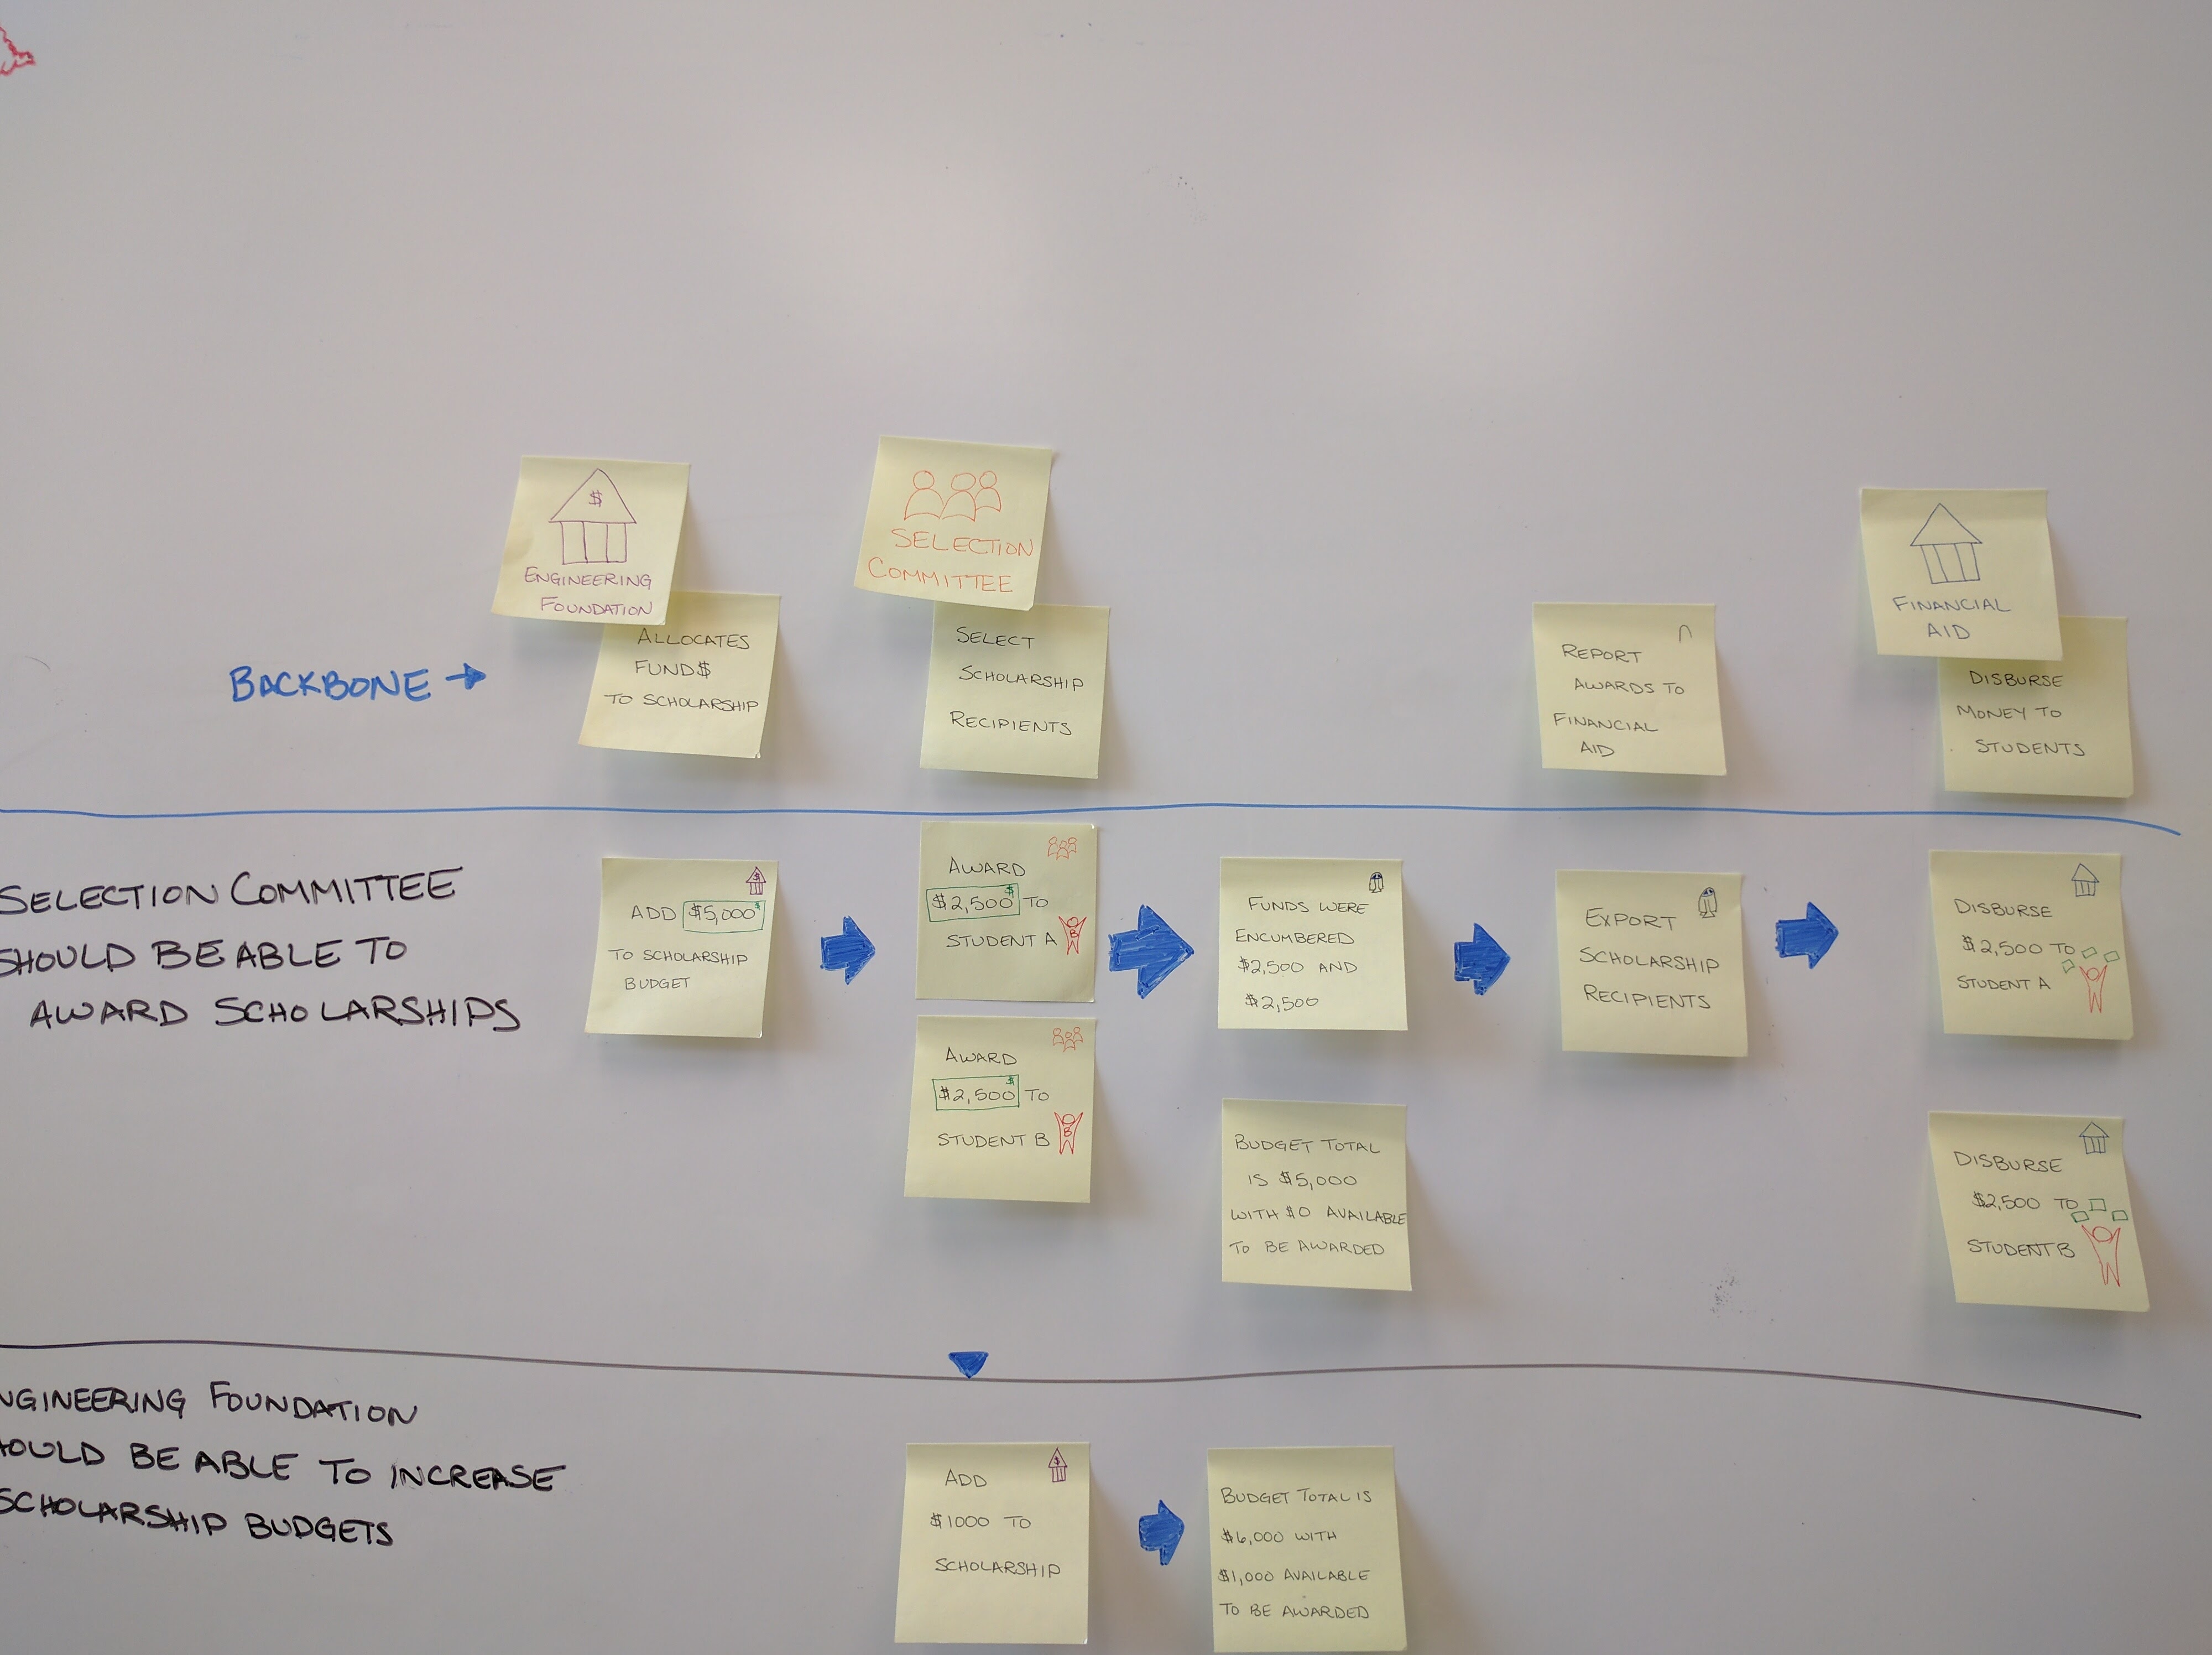 $
ENGINEERING
FOUNDATION
ALLOCATES
FUND$
TO SCHOLARSHIP
SELECTION
COMMITTEE
SELECT
SCHOLARSHIP
RECIPIENTS
REPORT
AWARDS TO
FINANCIAL
AID
FINANCIAL
AID
DISBURSE
MONEY TO
STUDENTS
BACKBONE →
SELECTION COMMITTEE
SHOULD BE ABLE TO
AWARD SCHOLARSHIPS
$
ADD $5,000 $
TO SCHOLARSHIP
BUDGET
AWARD
$2,500 $ TO
STUDENT A
B
AWARD
$2,500 $ TO
STUDENT B
B
FUNDS WERE
ENCUMBERED
$2,500 AND
$2,500
BUDGET TOTAL
IS $5,000
WITH $0 AVAILABLE
TO BE AWARDED
EXPORT
SCHOLARSHIP
RECIPIENTS
DISBURSE
$2,500 TO
STUDENT A
DISBURSE
$2,500 TO
STUDENT B
NGINEERING FOUNDATION
HOULD BE ABLE TO INCREASE
SCHOLARSHIP BUDGETS
$
ADD
$1000 TO
SCHOLARSHIP
BUDGET TOTAL IS
$6,000 WITH
$1,000 AVAILABLE
TO BE AWARDED